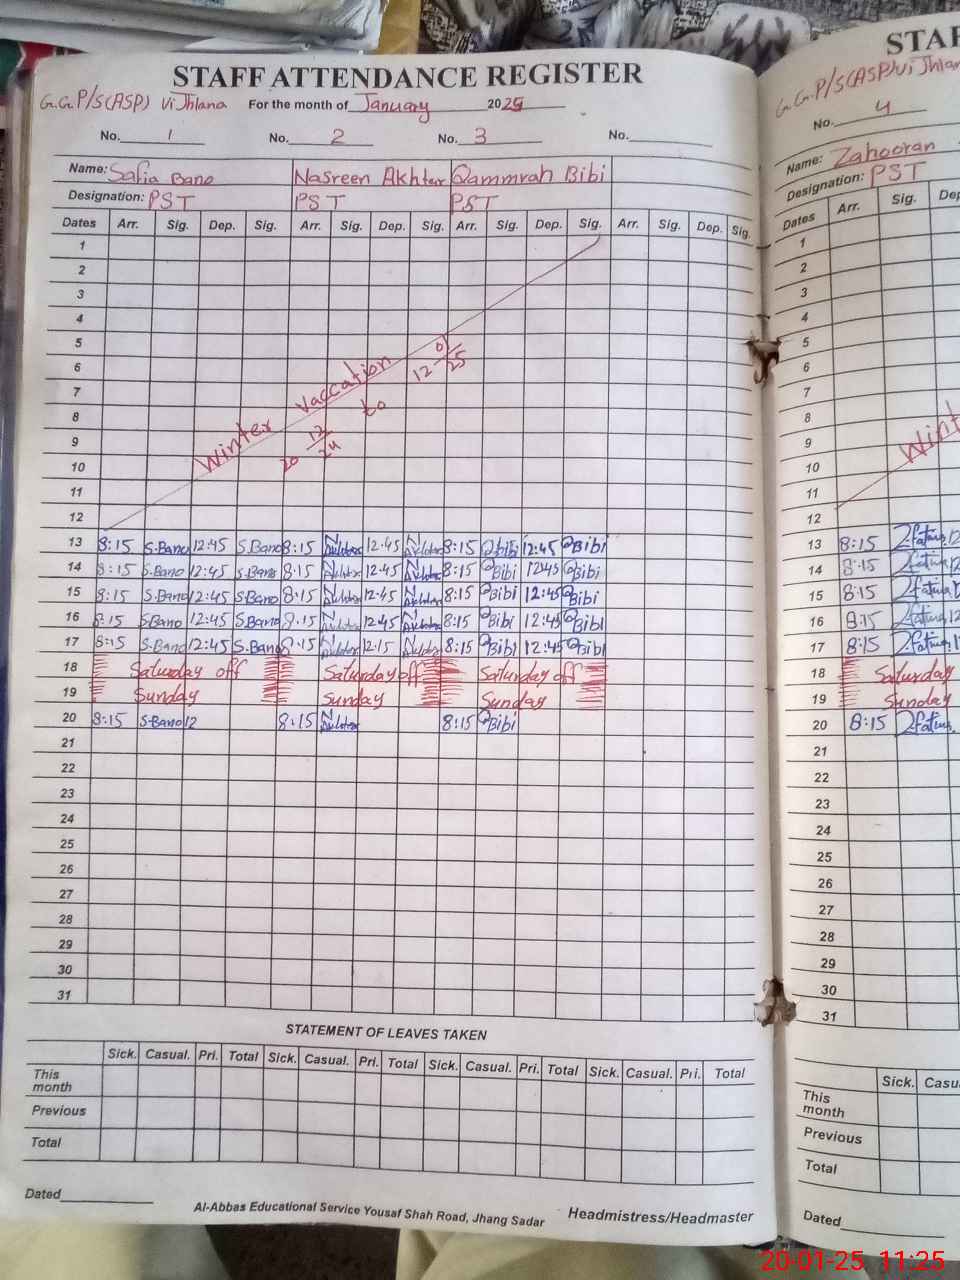 STAFF ATTENDANCE REGISTER
G.G.P/S(ASP) Vijhlana For the month of January 2025
No. 1 No. 2 No. 3 No.
Name: Safia Bano Nasreen Akhter Qammrah Bibi
Designation: PST PST PST
Dates Arr. Sig. Dep. Sig. Arr. Sig. Dep. Sig. Arr. Sig. Dep. Sig. Arr. Sig. Dep. Sig.
1
2
3
4
5
6
7
8
9
10
11
12
Winter Vaccation
20 12/24 to 12 01/25
13 8:15 S.Bano 12:45 S.Bano 8:15 N Akhter 12:45 N Akhter 8:15 QBibi 12:45 QBibi
14 8:15 S.Bano 12:45 S.Bano 8:15 N Akhter 12:45 N Akhter 8:15 QBibi 12:45 QBibi
15 8:15 S.Bano 12:45 S.Bano 8:15 N Akhter 12:45 N Akhter 8:15 QBibi 12:45 QBibi
16 8:15 S.Bano 12:45 S.Bano 8:15 N Akhter 12:45 N Akhter 8:15 QBibi 12:45 QBibi
17 8:15 S.Bano 12:45 S.Bano 8:15 N Akhter 12:15 N Akhter 8:15 QBibi 12:45 QBibi
18 Saturday off Saturday off Saturday off
19 Sunday Sunday Sunday
20 8:15 S.Bano 12 8:15 N Akhter 8:15 QBibi
21
22
23
24
25
26
27
28
29
30
31
STATEMENT OF LEAVES TAKEN
Sick. Casual. Pri. Total Sick. Casual. Pri. Total Sick. Casual. Pri. Total Sick. Casual. Pri. Total
This month
Previous
Total
Dated
Al-Abbas Educational Service Yousaf Shah Road, Jhang Sadar Headmistress/Headmaster
STAF
G.G.P/S(ASP) Vijhlana
No. 4
Name: Zahooran
Designation: PST
Dates Arr. Sig. Dep
1
2
3
4
5
6
7
8
9
10
11
12
Wint
13 8:15 12
14 8:15 12
15 8:15
16 8:15 12
17 8:15
18 Saturday
19 Sunday
20 8:15
21
22
23
24
25
26
27
28
29
30
31
Sick. Casu
This month
Previous
Total
Dated
20-01-25 11:25